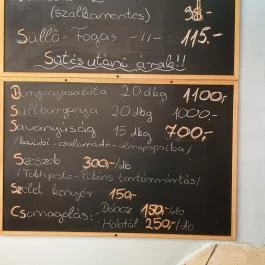 (szálkamentes) 98.-
Süllő-Fogas -11- 115.-
Sütés utáni árak!!
Burgonyasaláta 20 dkg 1100,-
Sült burgonya 20 dkg 1000.-
Savanyúság 15 dkg 700,-
/kovubi - csalamádé - almapaprika/
Szószok 300,-/db
/Tabb pesto - Pikáns tartármártás/
Szelet kenyér 150,-
Csomagolás: Doboz 150,-/db
- Habtál 250,-/db